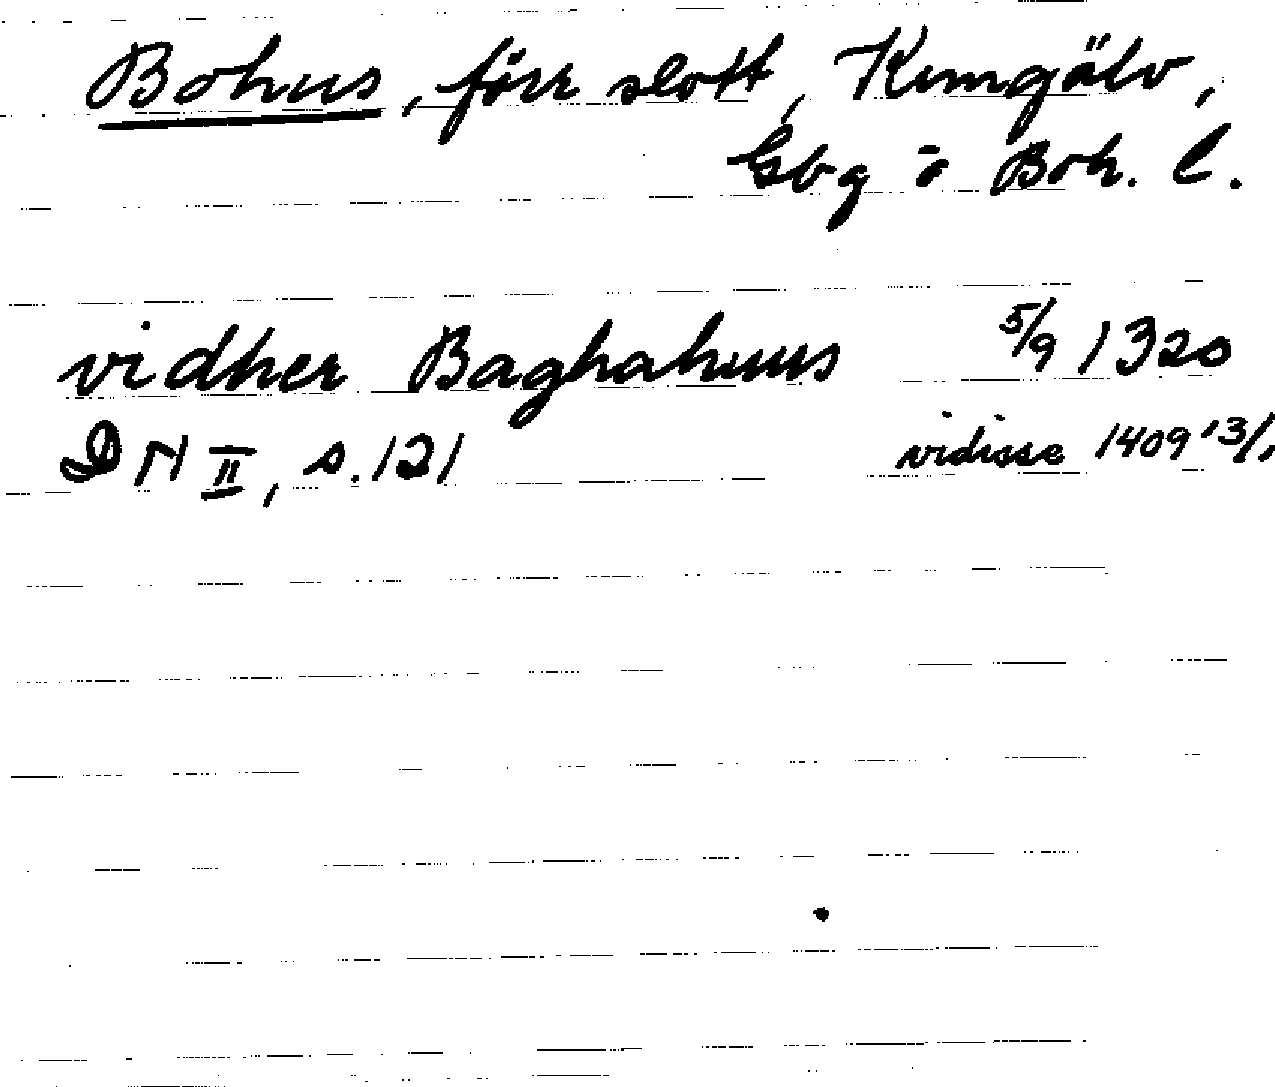 Bohus, förr slott, Kungälv,
Gbg o Boh. l.
vidher Baghahuus 5/9 1320
DN II, s. 121 vidisse 1409 13/1